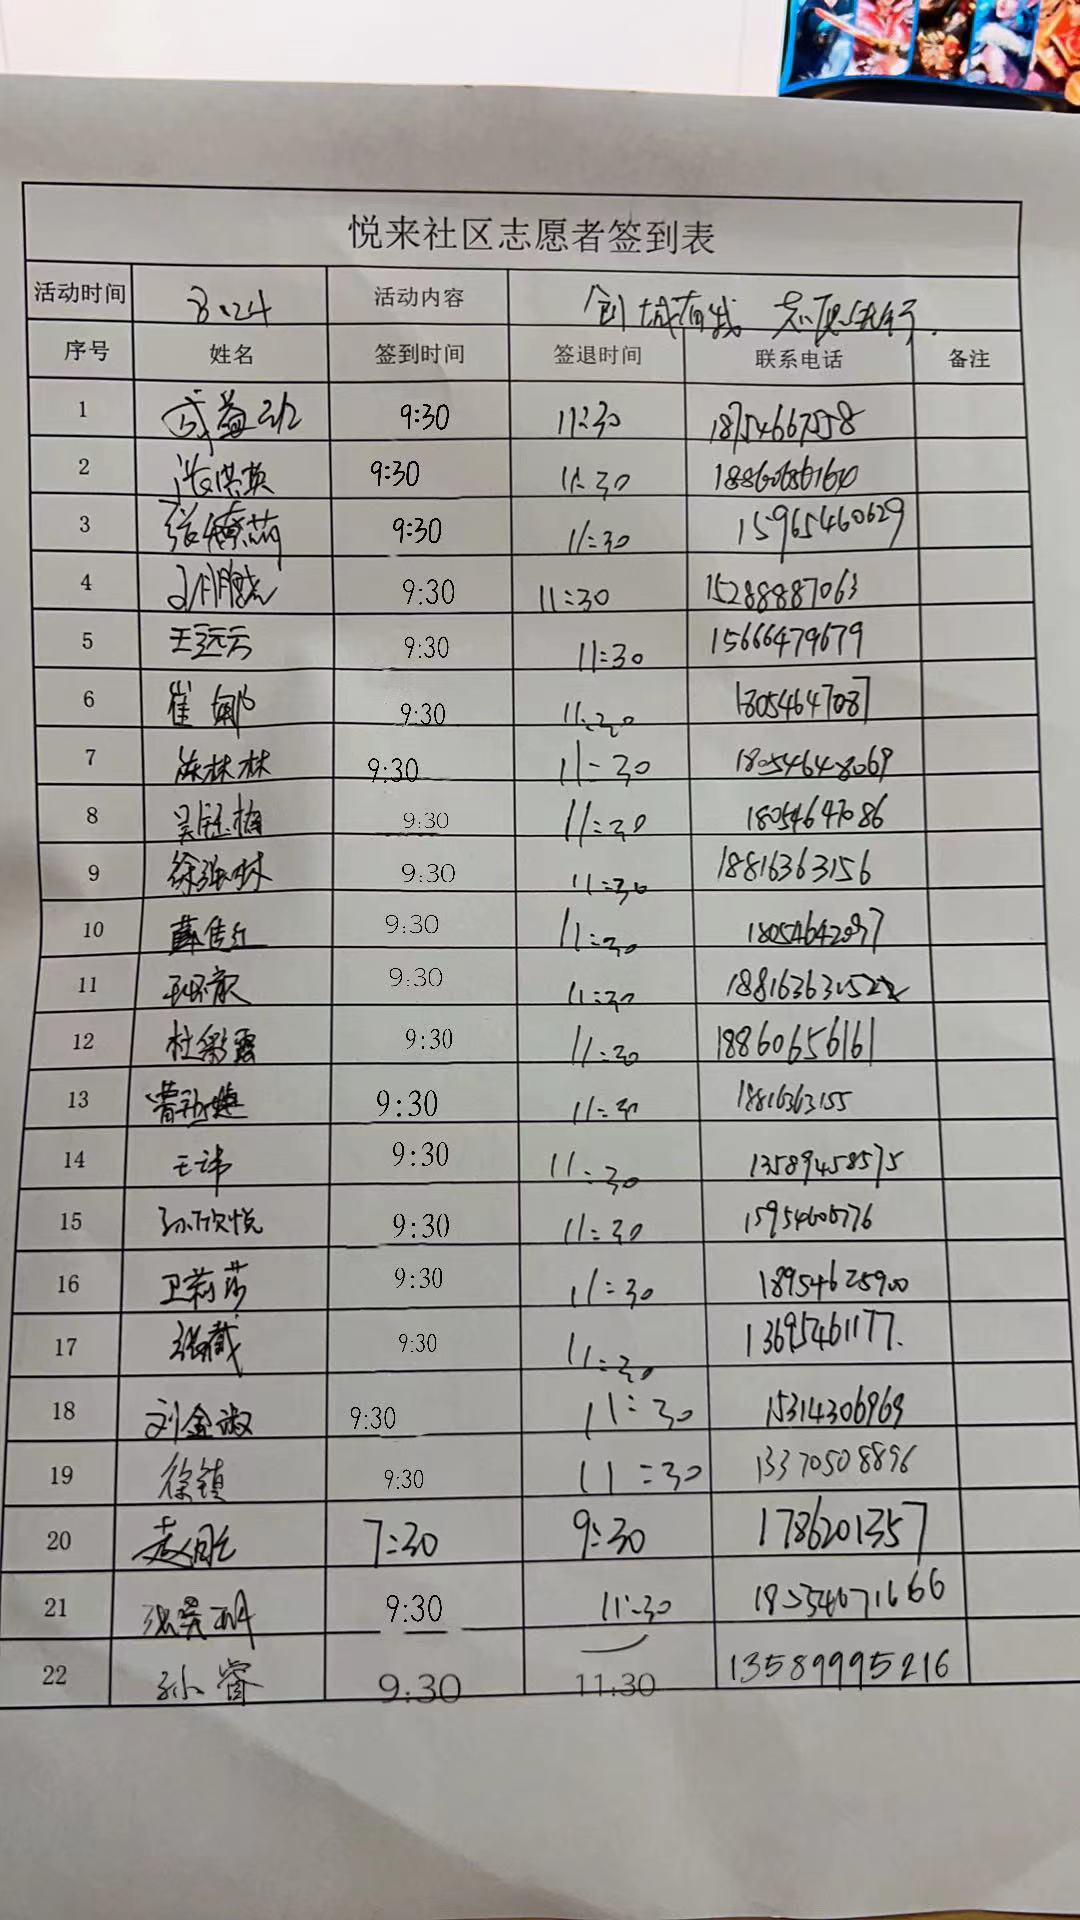 悦来社区志愿者签到表
活动时间 8.24 活动内容 创城有我 志愿先行.
序号 姓名 签到时间 签退时间 联系电话 备注
1 9:30 11:30
2 9:30 11:30
3 9:30 11:30 15965460629
4 9:30 11:30 15288887063
5 王远云 9:30 11:30 15666479679
6 崔娜 9:30 11:30 18054647087
7 陈林林 9:30 11:30 18054648069
8 吴钰梅 9:30 11:30 18054647086
9 徐强林 9:30 11:30 18816363156
10 薛佳红 9:30 11:30
11 9:30 11:30
12 杜彩霞 9:30 11:30 18860656161
13 9:30 11:30 18816363155
14 王讳 9:30 11:30 13589458575
15 孙欣悦 9:30 11:30
16 卫莉莎 9:30 11:30 18954625900
17 9:30 11:30 13695461177.
18 刘金淑 9:30 11:30 15314306969
19 徐镇 9:30 11:30 13370508896
20 7:30 9:30 1786201357
21 9:30 11:30
22 孙睿 9:30 11:30 13589995216